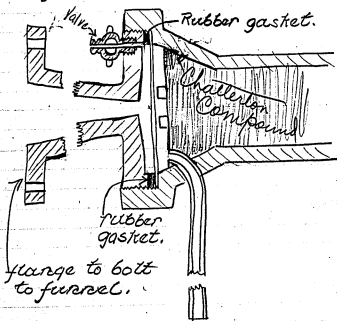 Valve
Rubber gasket.
Chatterton
Compound
rubber
gasket.
flange to bolt
to funnel.